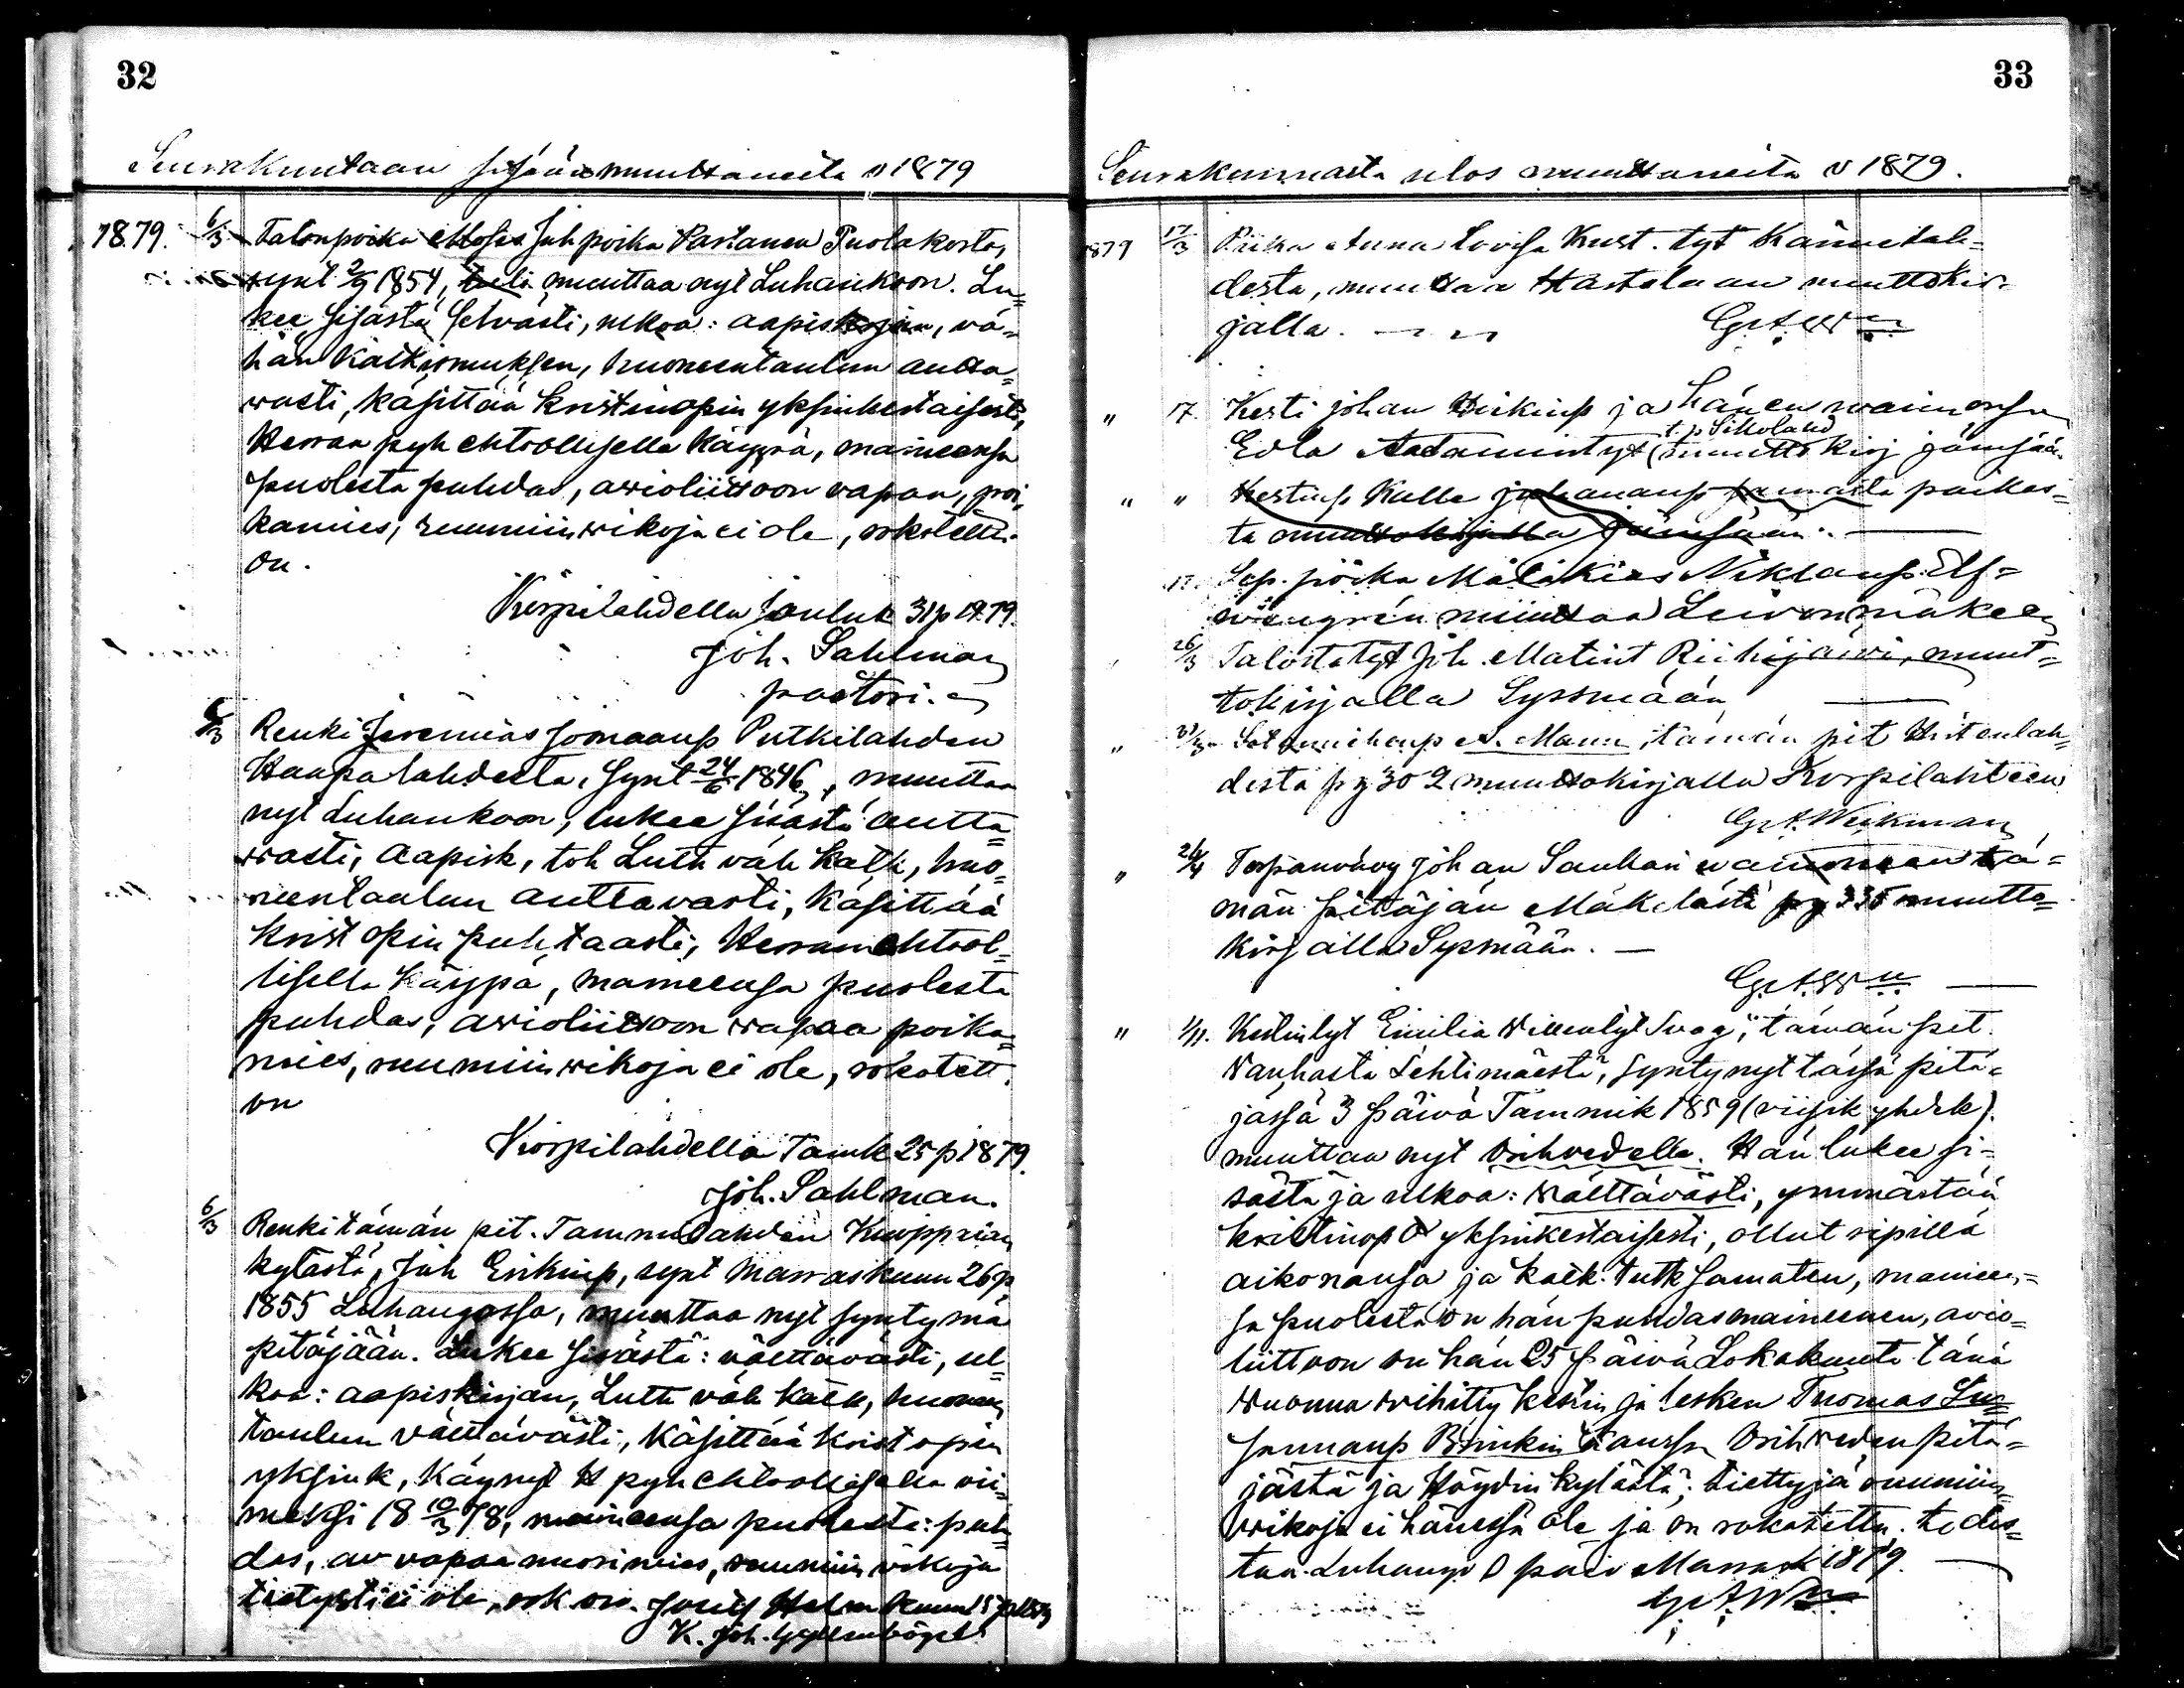 32
Seurakuntaan sisään muuttaneita v 1879
1879. 6/3 Talonpoika Moses Juh poika Partanen Puolakosta,
synt 2/9 1854, muuttaa nyt Luhankoon. Lu=
kee sisästä selvästi, ulkoa: aapiskirjan, vä=
hän Katkismuksen, huoneentaulun autta=
wasti, käsittää kristinopin yksinkertaisesti,
Herran pyh ehtoollisella käypä, maineensa
puolesta puhdas, awioliittoon vapaa, poi=
kamies, ruumiin wikoja ei ole, rokotettu
on.
Korpilahdella Jouluk 31 p 1879.
Joh. Sahlman
pastori.
6/3 Renki Jeremias Joonaanp Putkilahden
Haapalahdesta, synt 24/6 1846, muuttaa
nyt Luhankoon, lukee sisästä autta=
wasti, aapisk, toh Luth väh Katk, huo=
neentaulun auttavasti, käsittää
krist opin puhtaasti, Herran ehtool=
lisella käypä, maineensa puolesta
puhdas, awioliittoon wapaa poika=
mies, ruumiin wikoja ei ole, rokotett.
on
Korpilahdella Tamk 25 p 1879.
Joh. Sahlman.
6/3 Renki tämän pit. Tammilahden
kylästä, Juh Erikinp, synt Marraskuun 26 p
1855 Luhangossa, muuttaa nyt syntymä
pitäjään. Lukee sisästä: välttävästi, ul=
koa: aapiskirjan, Luth väh katk, huoneen
taulun välttävästi, käsittää krist opin
yksink, käynyt H pyh ehtoollisella vii=
meksi 18 10/3 78, maineensa puolesta: puh=
das, av vapaa nuorimies, ruumiin wikoja
tietysti ei ole, rok on.
K. Joh. Gyllenbögel
33
Seurakunnasta ulos muuttaneita v 1879.
1879 17/3 Piika Anna Lovisa Kust. tyt
desta, muuttaa Hartolaan muuttokir=
jalla. G.A.W—n
" 17. Kesti Johan Heikinp ja hänen waimonsa
t. p. Sikolahd
Edla Aadamintyt (muuttokirj Jämsään
" " Kestinp Kalle Johananp samasta paikas=
ta muuttokirjalla Jämsään.
17. Sep. poika Malakias Niklaanp
muuttaa Leivonmäkeen
26/3 Talostatyt Joh. Matint Riihijärvi, muut=
tokirjalla Sysmään
" A. Mann, tämän pit
desta pg 302 muuttokirjalla Korpilahteen
G.A. Weckman
" 26/4 Torpanvävy Johan waimoneen tä=
män pitäjän Mäkelästä pg 335 muutto=
kirjalla Sysmään.
G.A.W—n
" 1/11. Kestintyt Emilia Willentyt, tämän pit.
Wanhasta Lehtimäestä, syntynyt tässä pitä=
jässä 3 päivä Tammik 1859 (viisik yhdek).
muuttaa nyt Orihvedelle. Hän lukee si=
sästä ja ulkoa: wälttävästi, ymmärtää
kristinop yksinkertaisesti, ollut ripillä
aikonansa ja katk. tutk samaten, maineen=
sa puolesta on hän puhdasmaineinen, avio=
liittoon on hän 25 päivä Lokakuuta tänä
wuonna wihitty kestin ja lesken Thomas Su=
sannanp Brinkin kanssa Orihweden pitä=
jästä ja Höydin kylästä; tiettyjä ruumiin
wikoja ei hänessä ole ja on rokotettu. todis=
taa. Luhango päiv Marrask 1879.
G.A.W—n